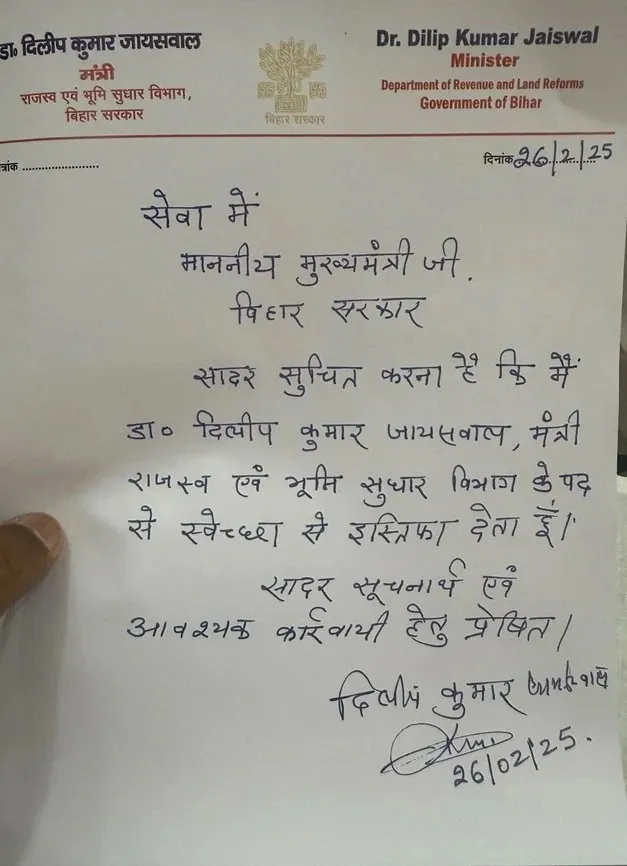 डा० दिलीप कुमार जायसवाल
मंत्री
राजस्व एवं भूमि सुधार विभाग,
बिहार सरकार
बिहार सरकार
Dr. Dilip Kumar Jaiswal
Minister
Department of Revenue and Land Reforms
Government of Bihar
त्रांक ......................
दिनांक 26/2/25
सेवा में
माननीय मुख्यमंत्री जी.
विहार सरकार
सादर सुचित करना है कि मैं
डा० दिलीप कुमार जायसवाल, मंत्री
राजस्व एवं भूमि सुधार विभाग के पद
से स्वेच्छा से इस्तिफा देता हूँ।
सादर सूचनार्थ एवं
आवश्यक कार्रवायी हेतु प्रेषित।
दिलीप कुमार
26/02/25.